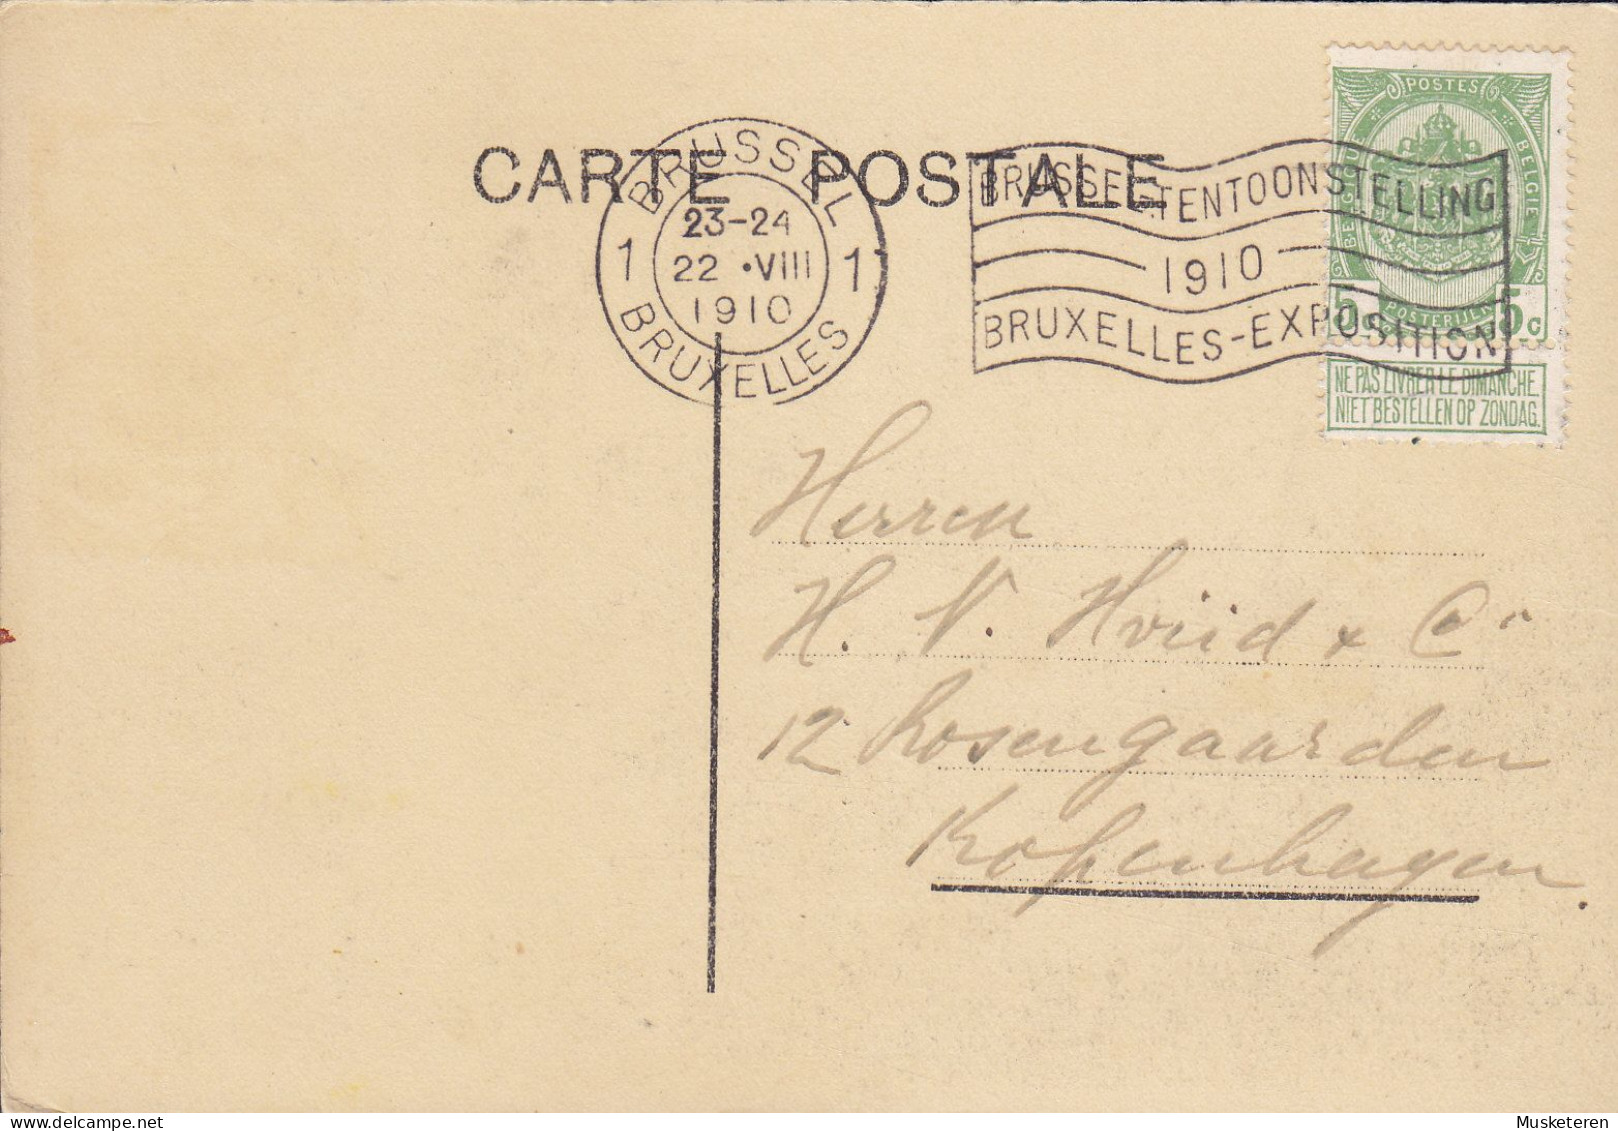 CARTE POSTALE
BRUSSEL
23-24
1 22 •VIII 1
1910
BRUXELLES
BRUSSEL-TENTOONSTELLING
1910
BRUXELLES-EXPOSITION
POSTES
BELGIQUE BELGIË
5c POSTERIJEN 5c
NE PAS LIVRER LE DIMANCHE
NIET BESTELLEN OP ZONDAG.
Herren
H. V. Hviid & Co
12 Rosengaarden
Kopenhagen.
Musketeren